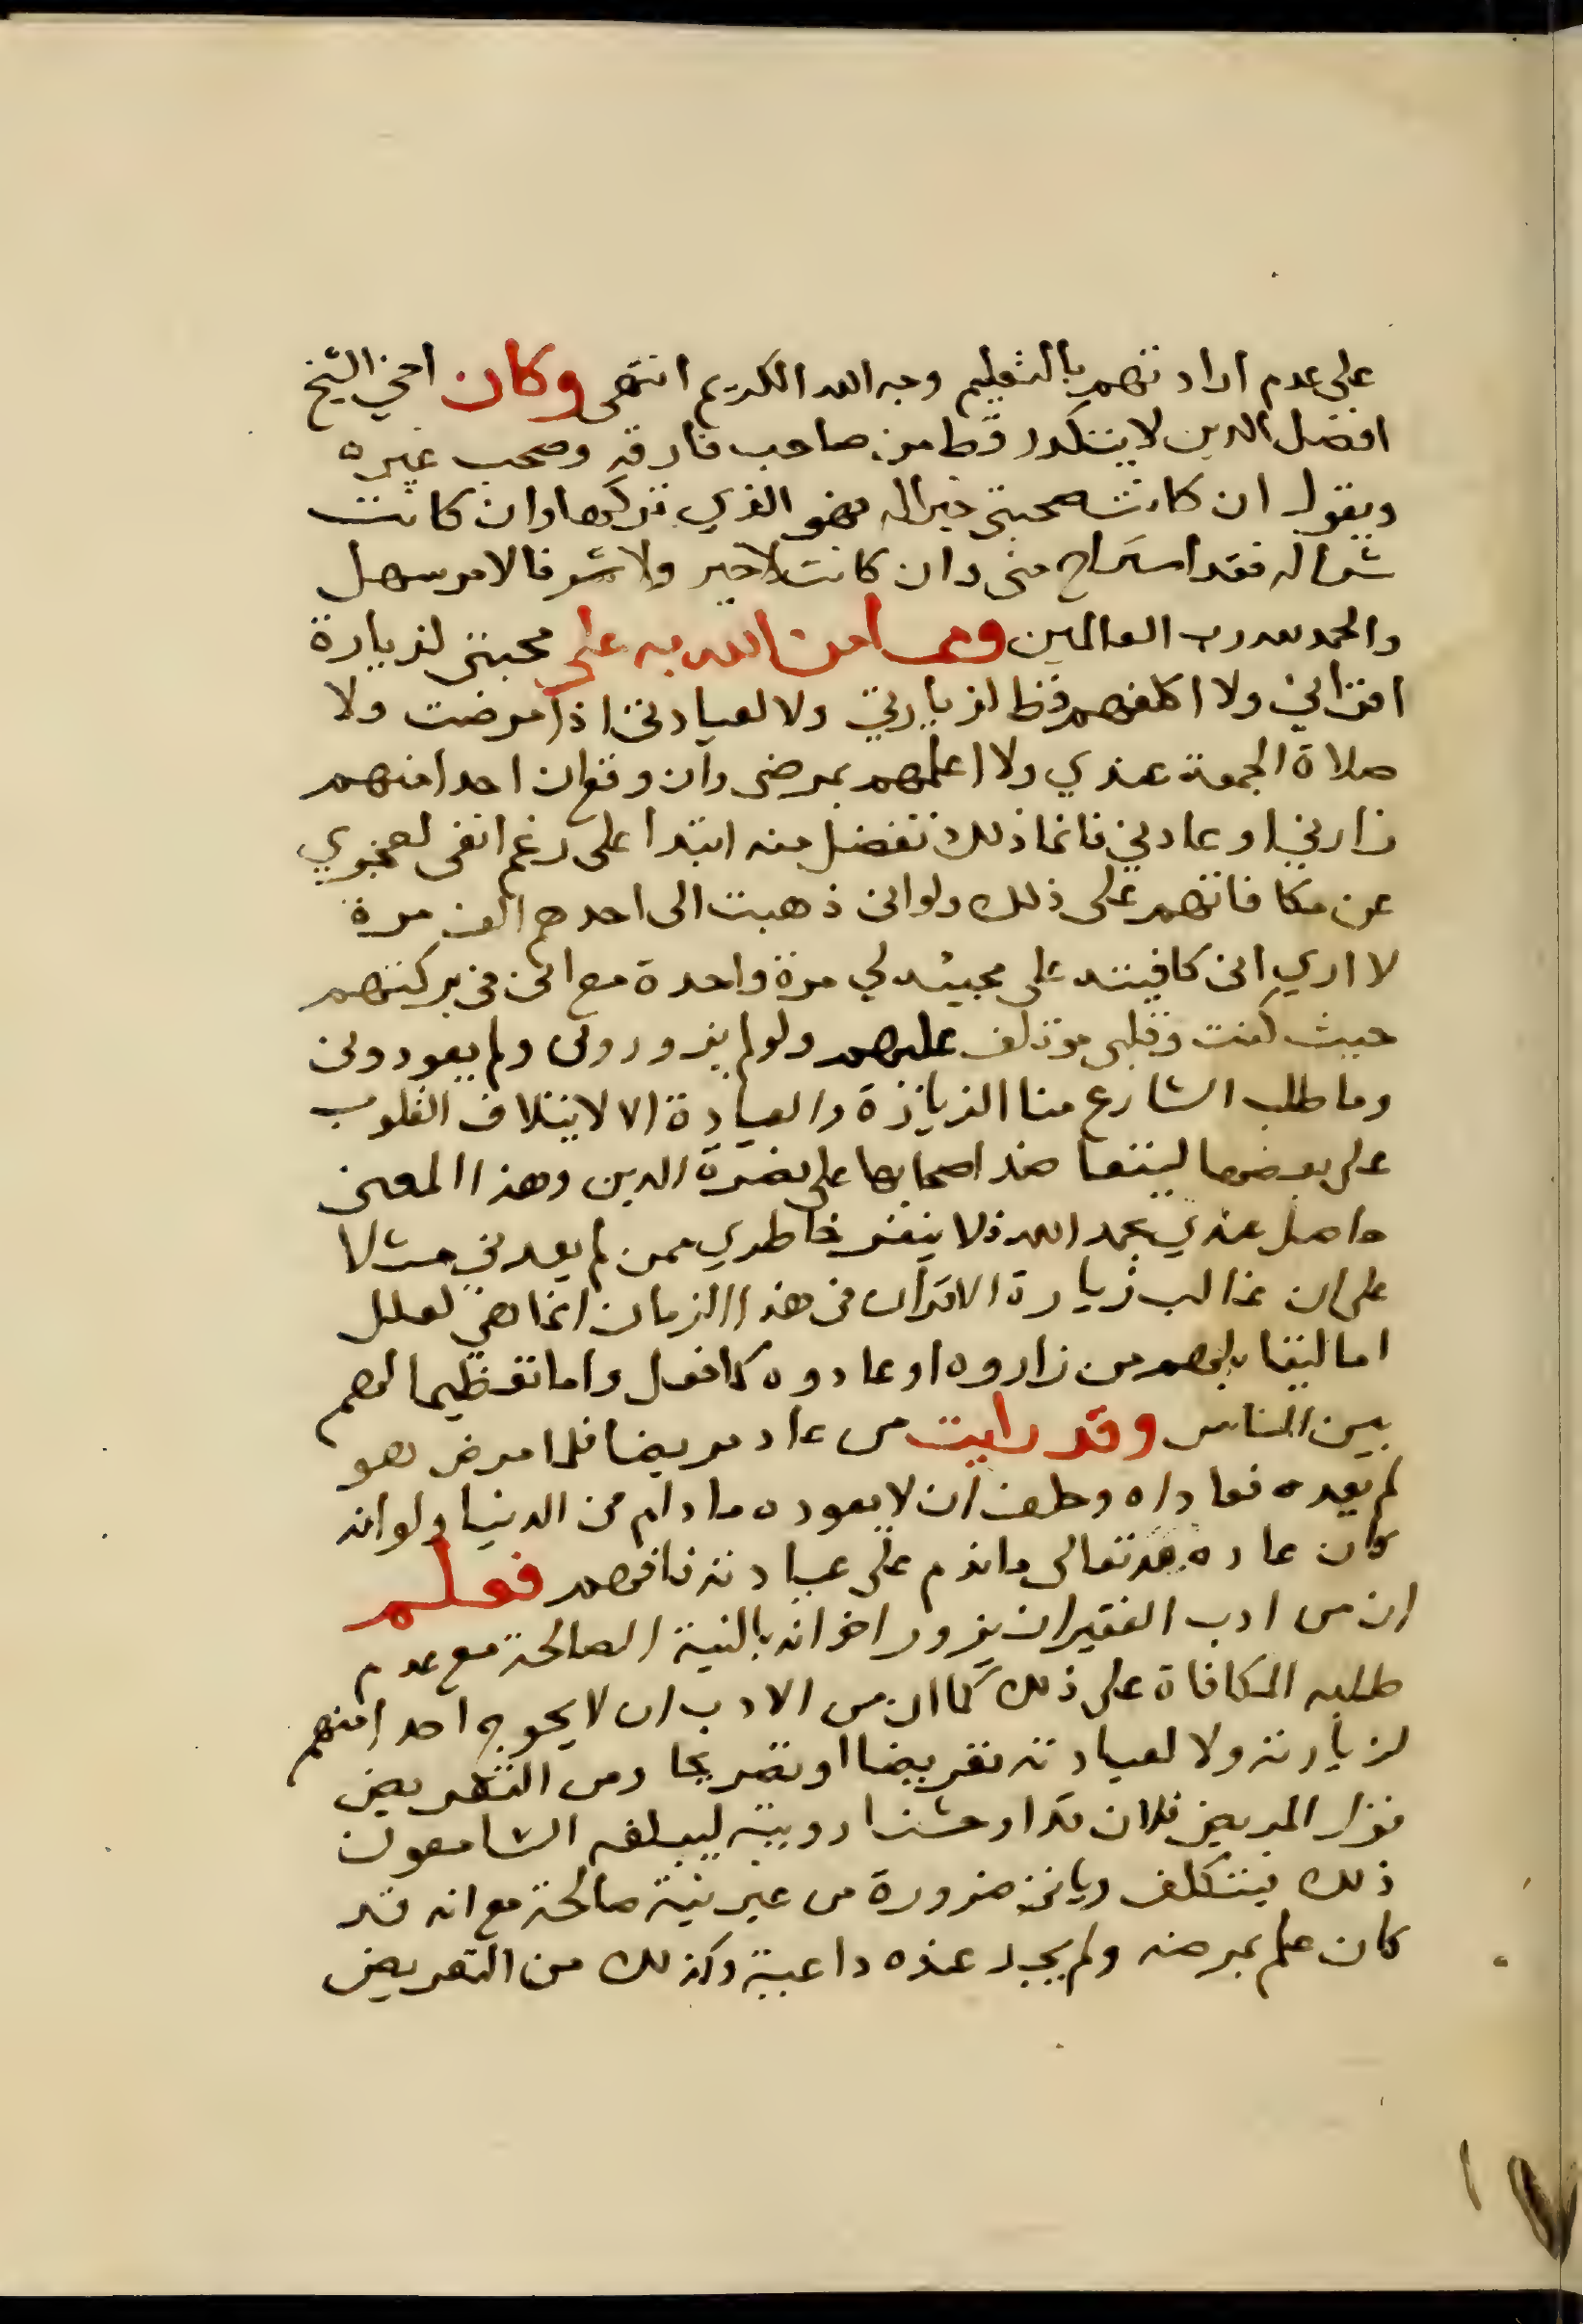 على عدم ارادتهم بالتعليم وجه الله الكريم انتهى وكان اخي الشيخ
افضل الدين لا يتكدر قط من صاحب فارقه وصحب غيره
ويقول ان كانت صحبتي خيرا له فهو الذي تركها وان كانت
شرا له فقد استراح مني وان كانت لا خير ولا شر فالامر سهل
والحمد لله رب العالمين ومما من الله به علي محبتي لزيارة
اقراني ولا اكلفهم قط لزيارتي ولا لعيادتي اذا مرضت ولا
صلاة الجمعة عندي ولا اعلمهم بمرضي وان وقع ان احدا منهم
زارني او عادني فانما ذلك تفضل منه ابتدا على رغم انفي لعجزي
عن مكافاتهم على ذلك ولو اني ذهبت الى احدهم الف مرة
لا اري اني كافيته على مجيئه لي مرة واحدة مع اني في بركتهم
حيث كنت وقلبي موتلف عليهم ولو لم يزوروني ولم يعودوني
وما طلب الشارع منا الزيارة والعيادة الا لايتلاف القلوب
على بعضها ليتعاضد اصحابها على نصرة الدين وهذا المعنى
حاصل عندي بحمد الله فلا يتغير خاطري ممن لم يعدني مثلا
على ان غالب زيارة الاقران في هذا الزمان انما هي لعلل
اما ليقابلهم من زاروه او عادوه كما فعل واما تعظيما لهم
بين الناس وقد رايت من عاد مريضا فلما مرض هو
لم يعده فعاداه وحلف ان لا يعوده ما دام في الدنيا ولو انه
كان عاده لله تعالى ما ندم على عيادته فافهم فعلم
ان من ادب الفقير ان يزور اخوانه بالنية الصالحة مع عدم
طلبه المكافاة على ذلك كما ان من الادب ان لا يحوج احدا منهم
لزيارته ولا لعيادته تعريضا او تصريحا ومن التعريض
قول المريض فلان قد اوحشنا رويته ليبلغه السامعون
ذلك فيتكلف وياتي ضرورة من غير نية صالحة مع انه قد
كان علم بمرضه ولم يجد عنده داعية وكذلك من التعريض